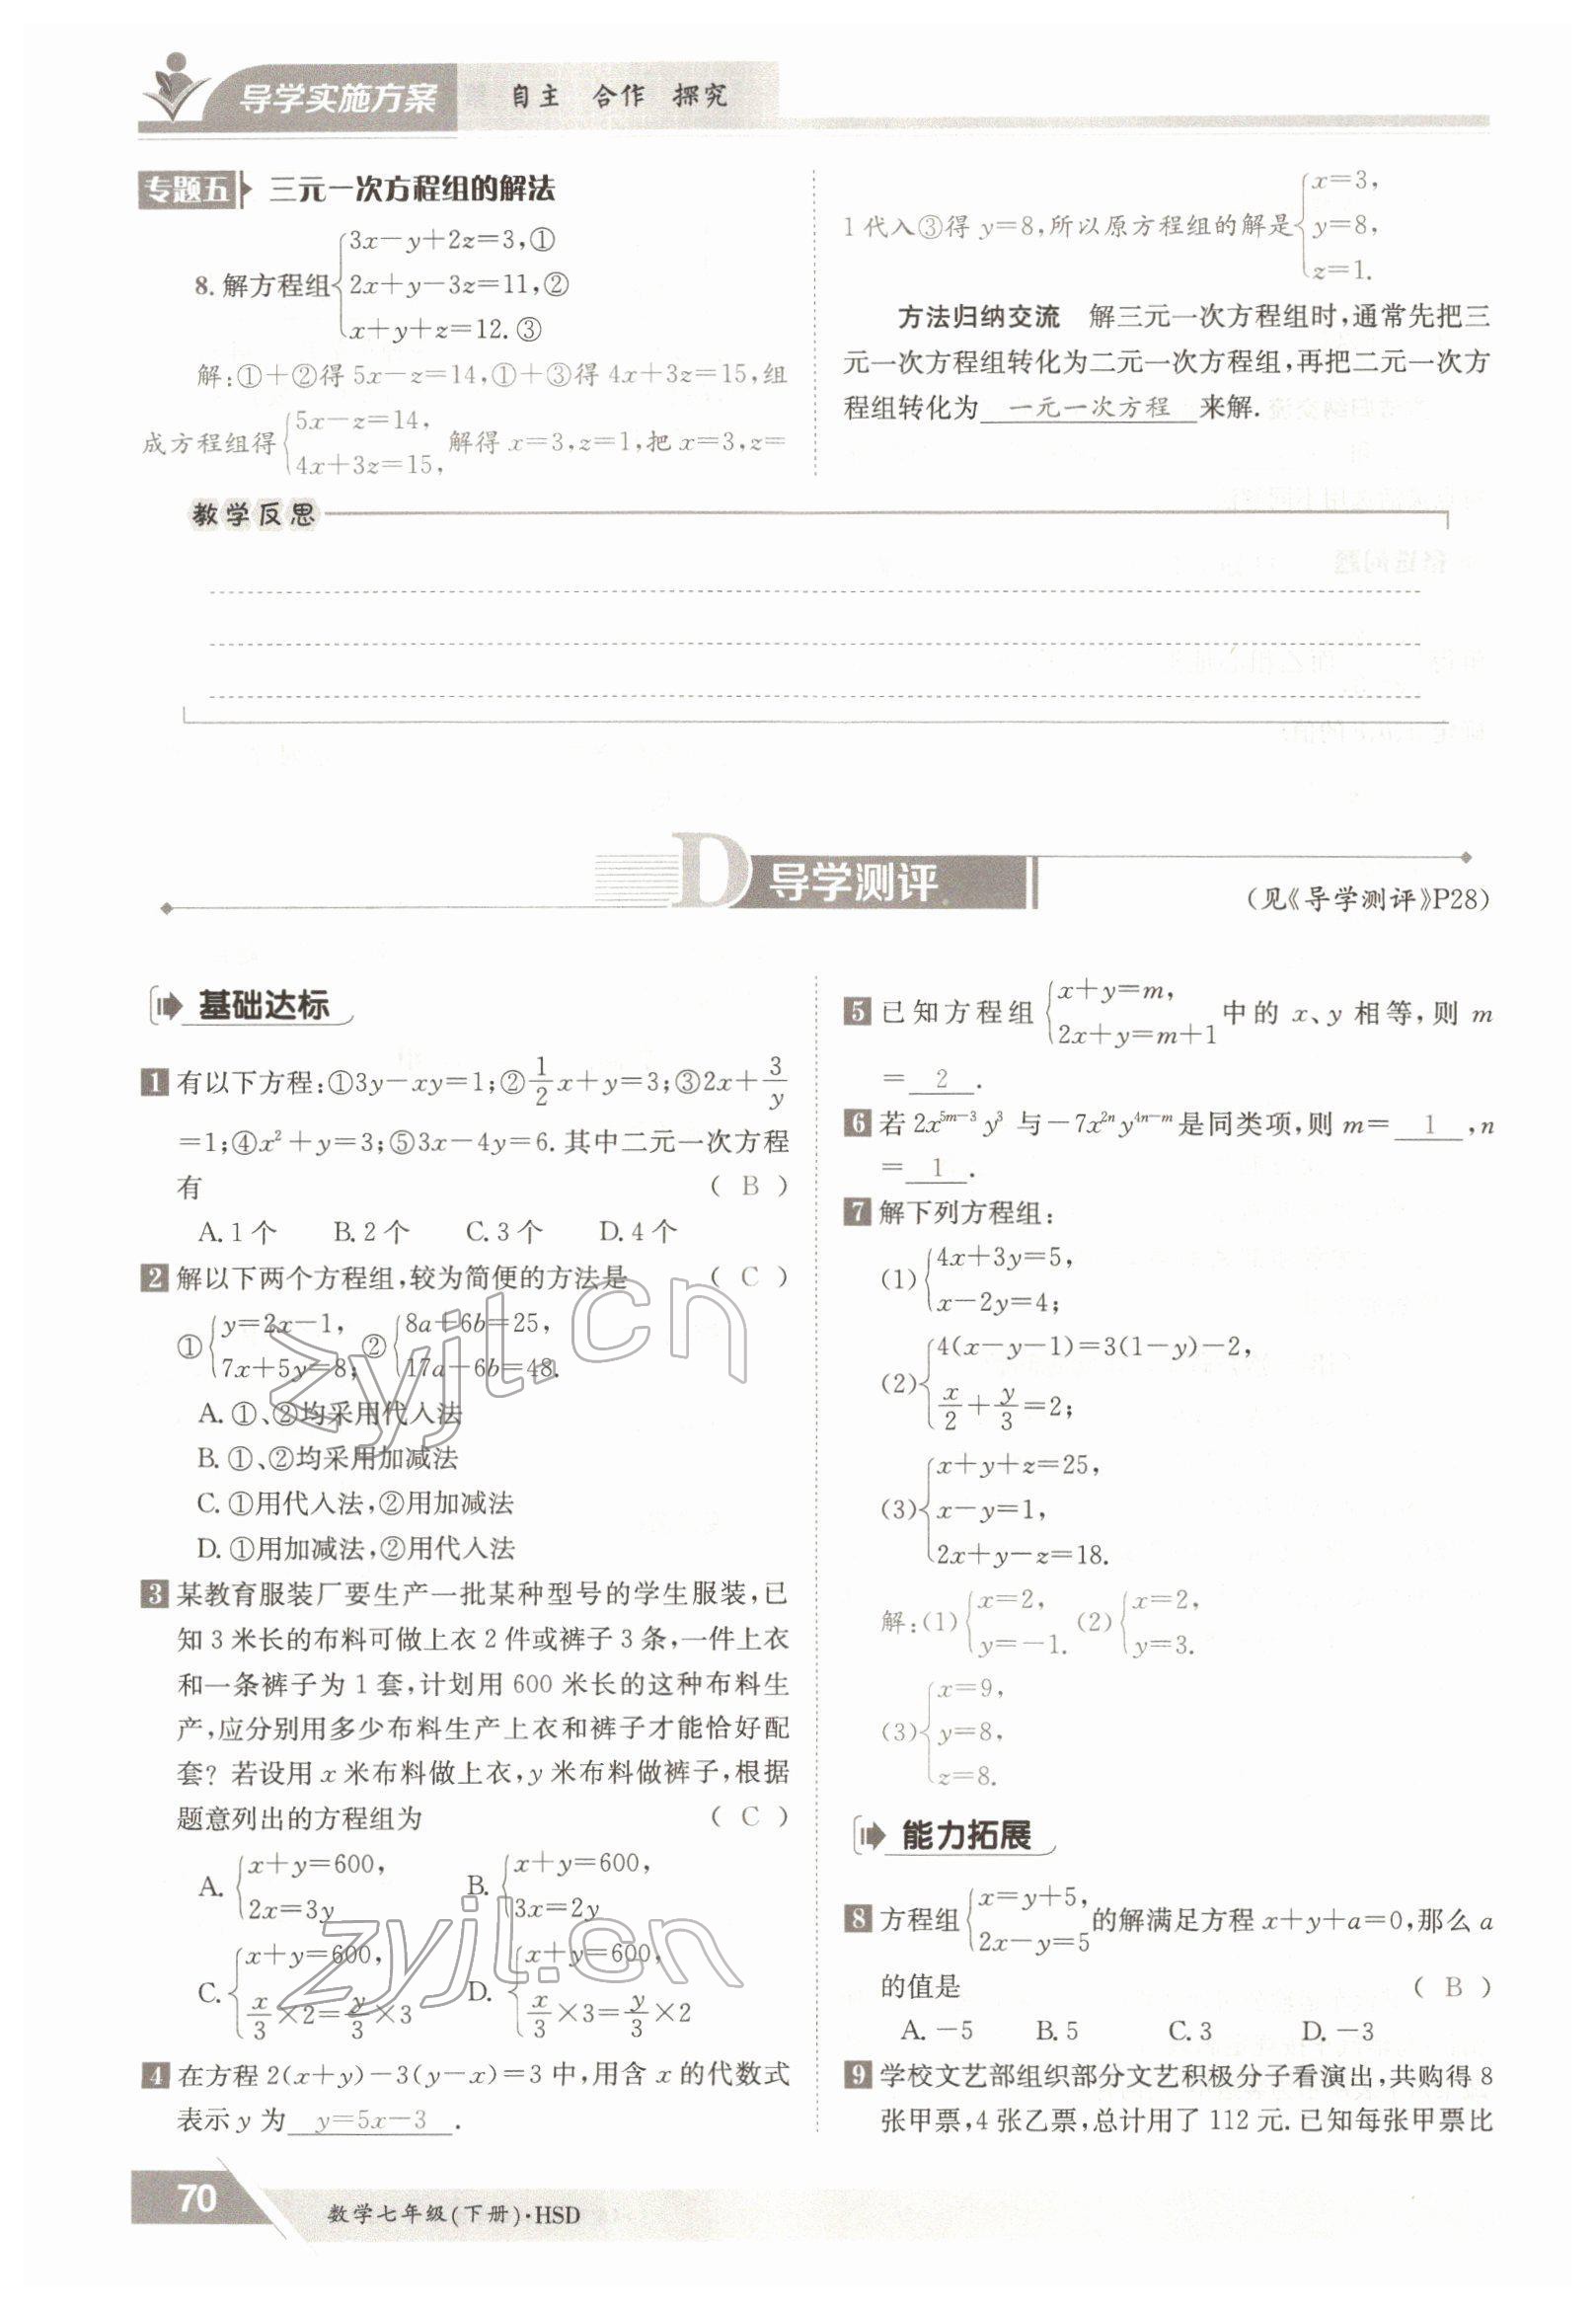 导学实施方案 自主 合作 探究
专题五 三元一次方程组的解法
8. 解方程组
3x－y＋2z＝3,①
2x＋y－3z＝11,②
x＋y＋z＝12.③
解:①＋②得 5x－z＝14,①＋③得 4x＋3z＝15,组
成方程组得
5x－z＝14,
4x＋3z＝15,
解得 x＝3,z＝1,把 x＝3,z＝
1 代入③得 y＝8,所以原方程组的解是
x＝3,
y＝8,
z＝1.
方法归纳交流 解三元一次方程组时,通常先把三
元一次方程组转化为二元一次方程组,再把二元一次方
程组转化为 一元一次方程 来解.
教学反思
D 导学测评
(见《导学测评》P28)
基础达标
1 有以下方程:①3y－xy＝1;②1/2x＋y＝3;③2x＋3/y
＝1;④x²＋y＝3;⑤3x－4y＝6. 其中二元一次方程
有 ( B )
A. 1 个 B. 2 个 C. 3 个 D. 4 个
2 解以下两个方程组,较为简便的方法是 ( C )
①
y＝2x－1,
7x＋5y＝8;
②
8a＋6b＝25,
17a－6b＝48.
A. ①、②均采用代入法
B. ①、②均采用加减法
C. ①用代入法,②用加减法
D. ①用加减法,②用代入法
3 某教育服装厂要生产一批某种型号的学生服装,已
知 3 米长的布料可做上衣 2 件或裤子 3 条,一件上衣
和一条裤子为 1 套,计划用 600 米长的这种布料生
产,应分别用多少布料生产上衣和裤子才能恰好配
套? 若设用 x 米布料做上衣,y 米布料做裤子,根据
题意列出的方程组为 ( C )
A.
x＋y＝600,
2x＝3y
B.
x＋y＝600,
3x＝2y
C.
x＋y＝600,
x/3×2＝y/3×3
D.
x＋y＝600,
x/3×3＝y/3×2
4 在方程 2(x＋y)－3(y－x)＝3 中,用含 x 的代数式
表示 y 为 y＝5x－3 .
5 已知方程组
x＋y＝m,
2x＋y＝m＋1
中的 x、y 相等,则 m
＝ 2 .
6 若 2x⁵ᵐ⁻³y³ 与－7x²ⁿy⁴ⁿ⁻ᵐ是同类项,则 m＝ 1 ,n
＝ 1 .
7 解下列方程组:
(1)
4x＋3y＝5,
x－2y＝4;
(2)
4(x－y－1)＝3(1－y)－2,
x/2＋y/3＝2;
(3)
x＋y＋z＝25,
x－y＝1,
2x＋y－z＝18.
解:(1)
x＝2,
y＝－1.
(2)
x＝2,
y＝3.
(3)
x＝9,
y＝8,
z＝8.
能力拓展
8 方程组
x＝y＋5,
2x－y＝5
的解满足方程 x＋y＋a＝0,那么 a
的值是 ( B )
A. －5 B. 5 C. 3 D. －3
9 学校文艺部组织部分文艺积极分子看演出,共购得 8
张甲票,4 张乙票,总计用了 112 元. 已知每张甲票比
70 数学七年级(下册)·HSD
zyjl.cn
zyjl.cn